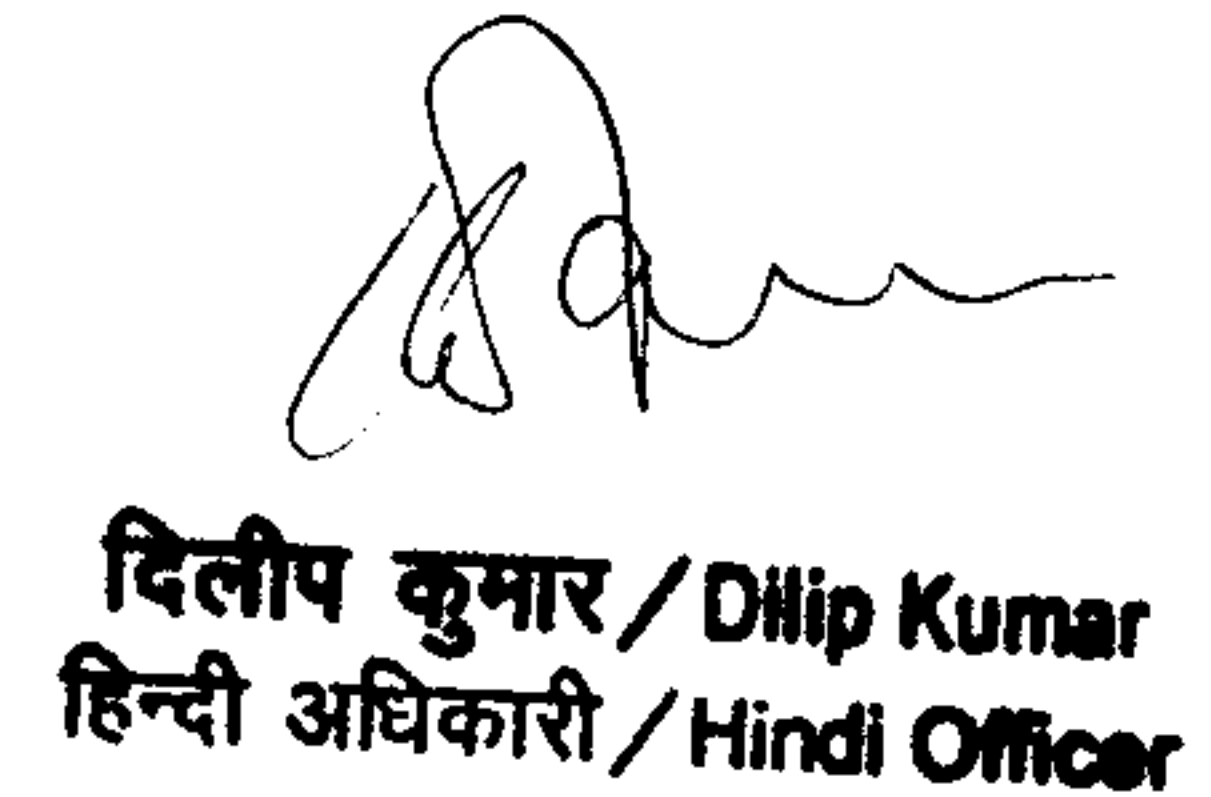 दिलीप कुमार / Dilip Kumar
हिन्दी अधिकारी / Hindi Officer